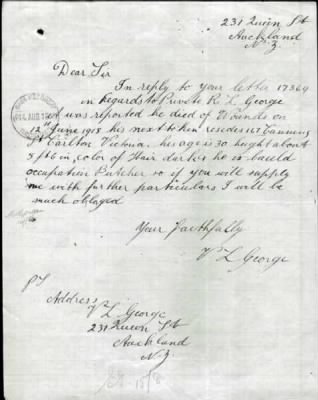 231 Quin St
Auckland
N.Z.
Dear Sir
In reply to your letter 17369
in Regards to Private R. L. George
was reported he died of Wounds on
12th June 1915 his next to ken resedes 117 Canning
St Carlton Victoria his age is 30 height about
5 ft 6 in color of Hair darke he is bauld
occupation Butcher so if you will supply
me with further particulars I will be
much oblaged
Your Faithfully
V L George
PS
Address
V L George
231 Queen St
Auckland
N.Z